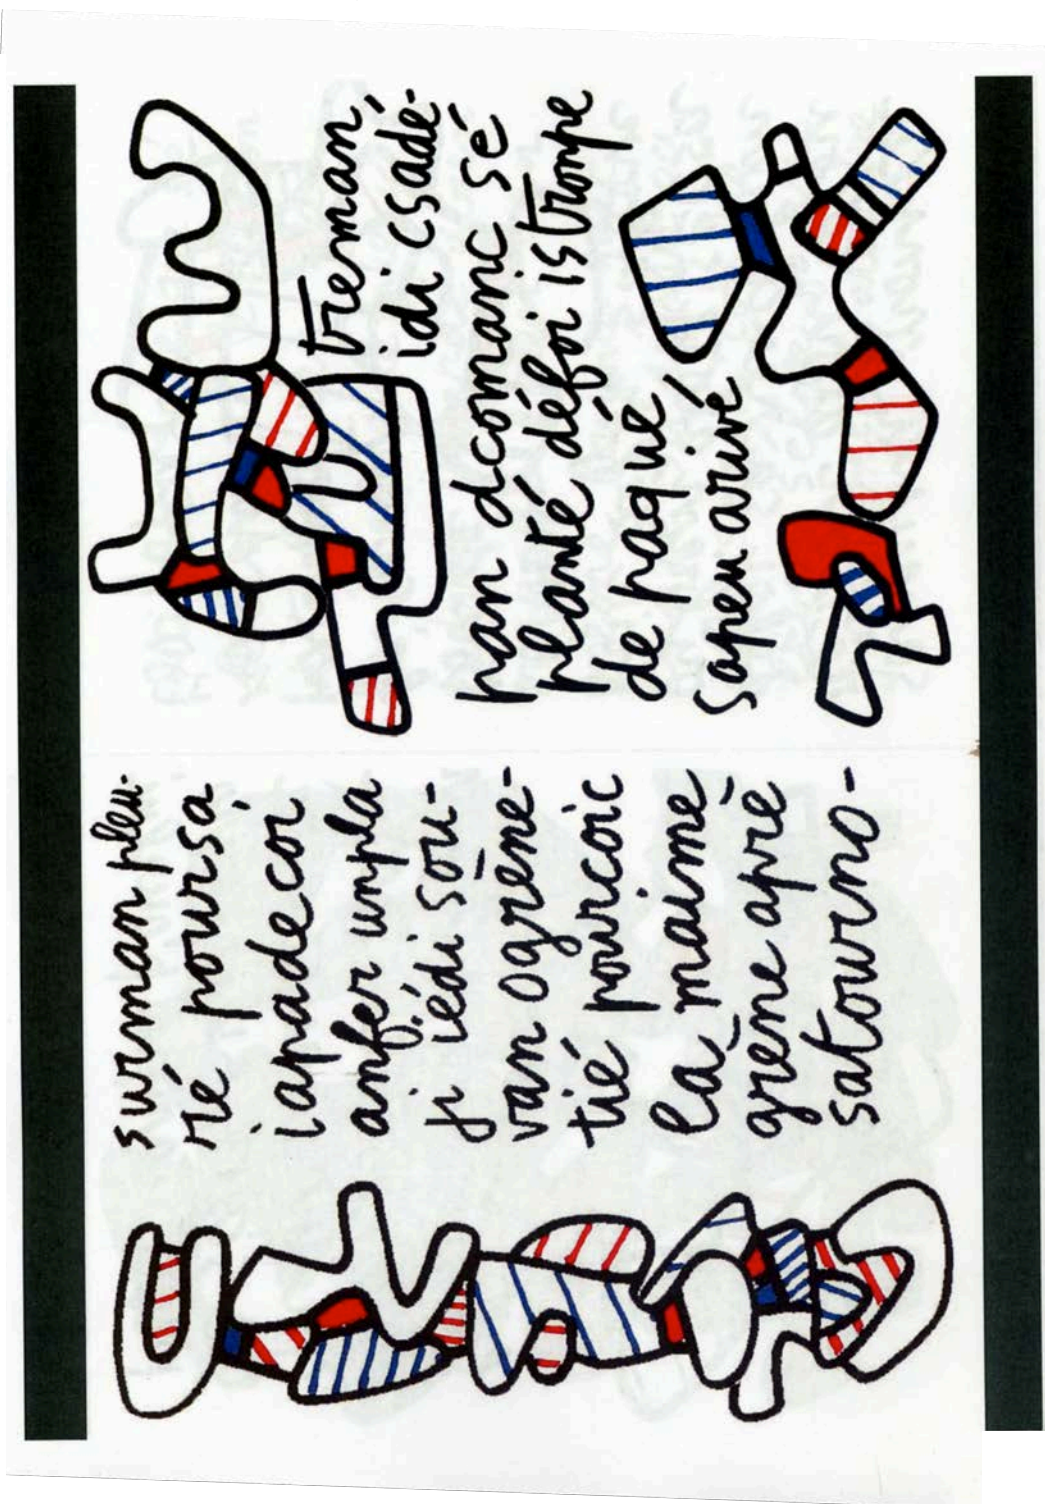 surman pleu-
ré poursa
iapadecoi
anfer unpla
ji iédi sou-
van ograine-
tié pourcoic
la maime
grène aprè
satourno-
treman,
idi csadé-
pan dcomanc sé
planté défoi istrompe
de paqué
sapeu arivé